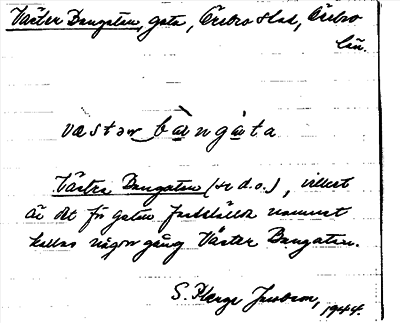 Väster Bangatan, gata, Örebro stad, Örebro
län.
västər bàngàta
Västra Bangatan (se d.o.), vilket
är det för gatan fastställda namnet
kallas någon gång Väster Bangatan.
S. Helge Jacobson, 1944.